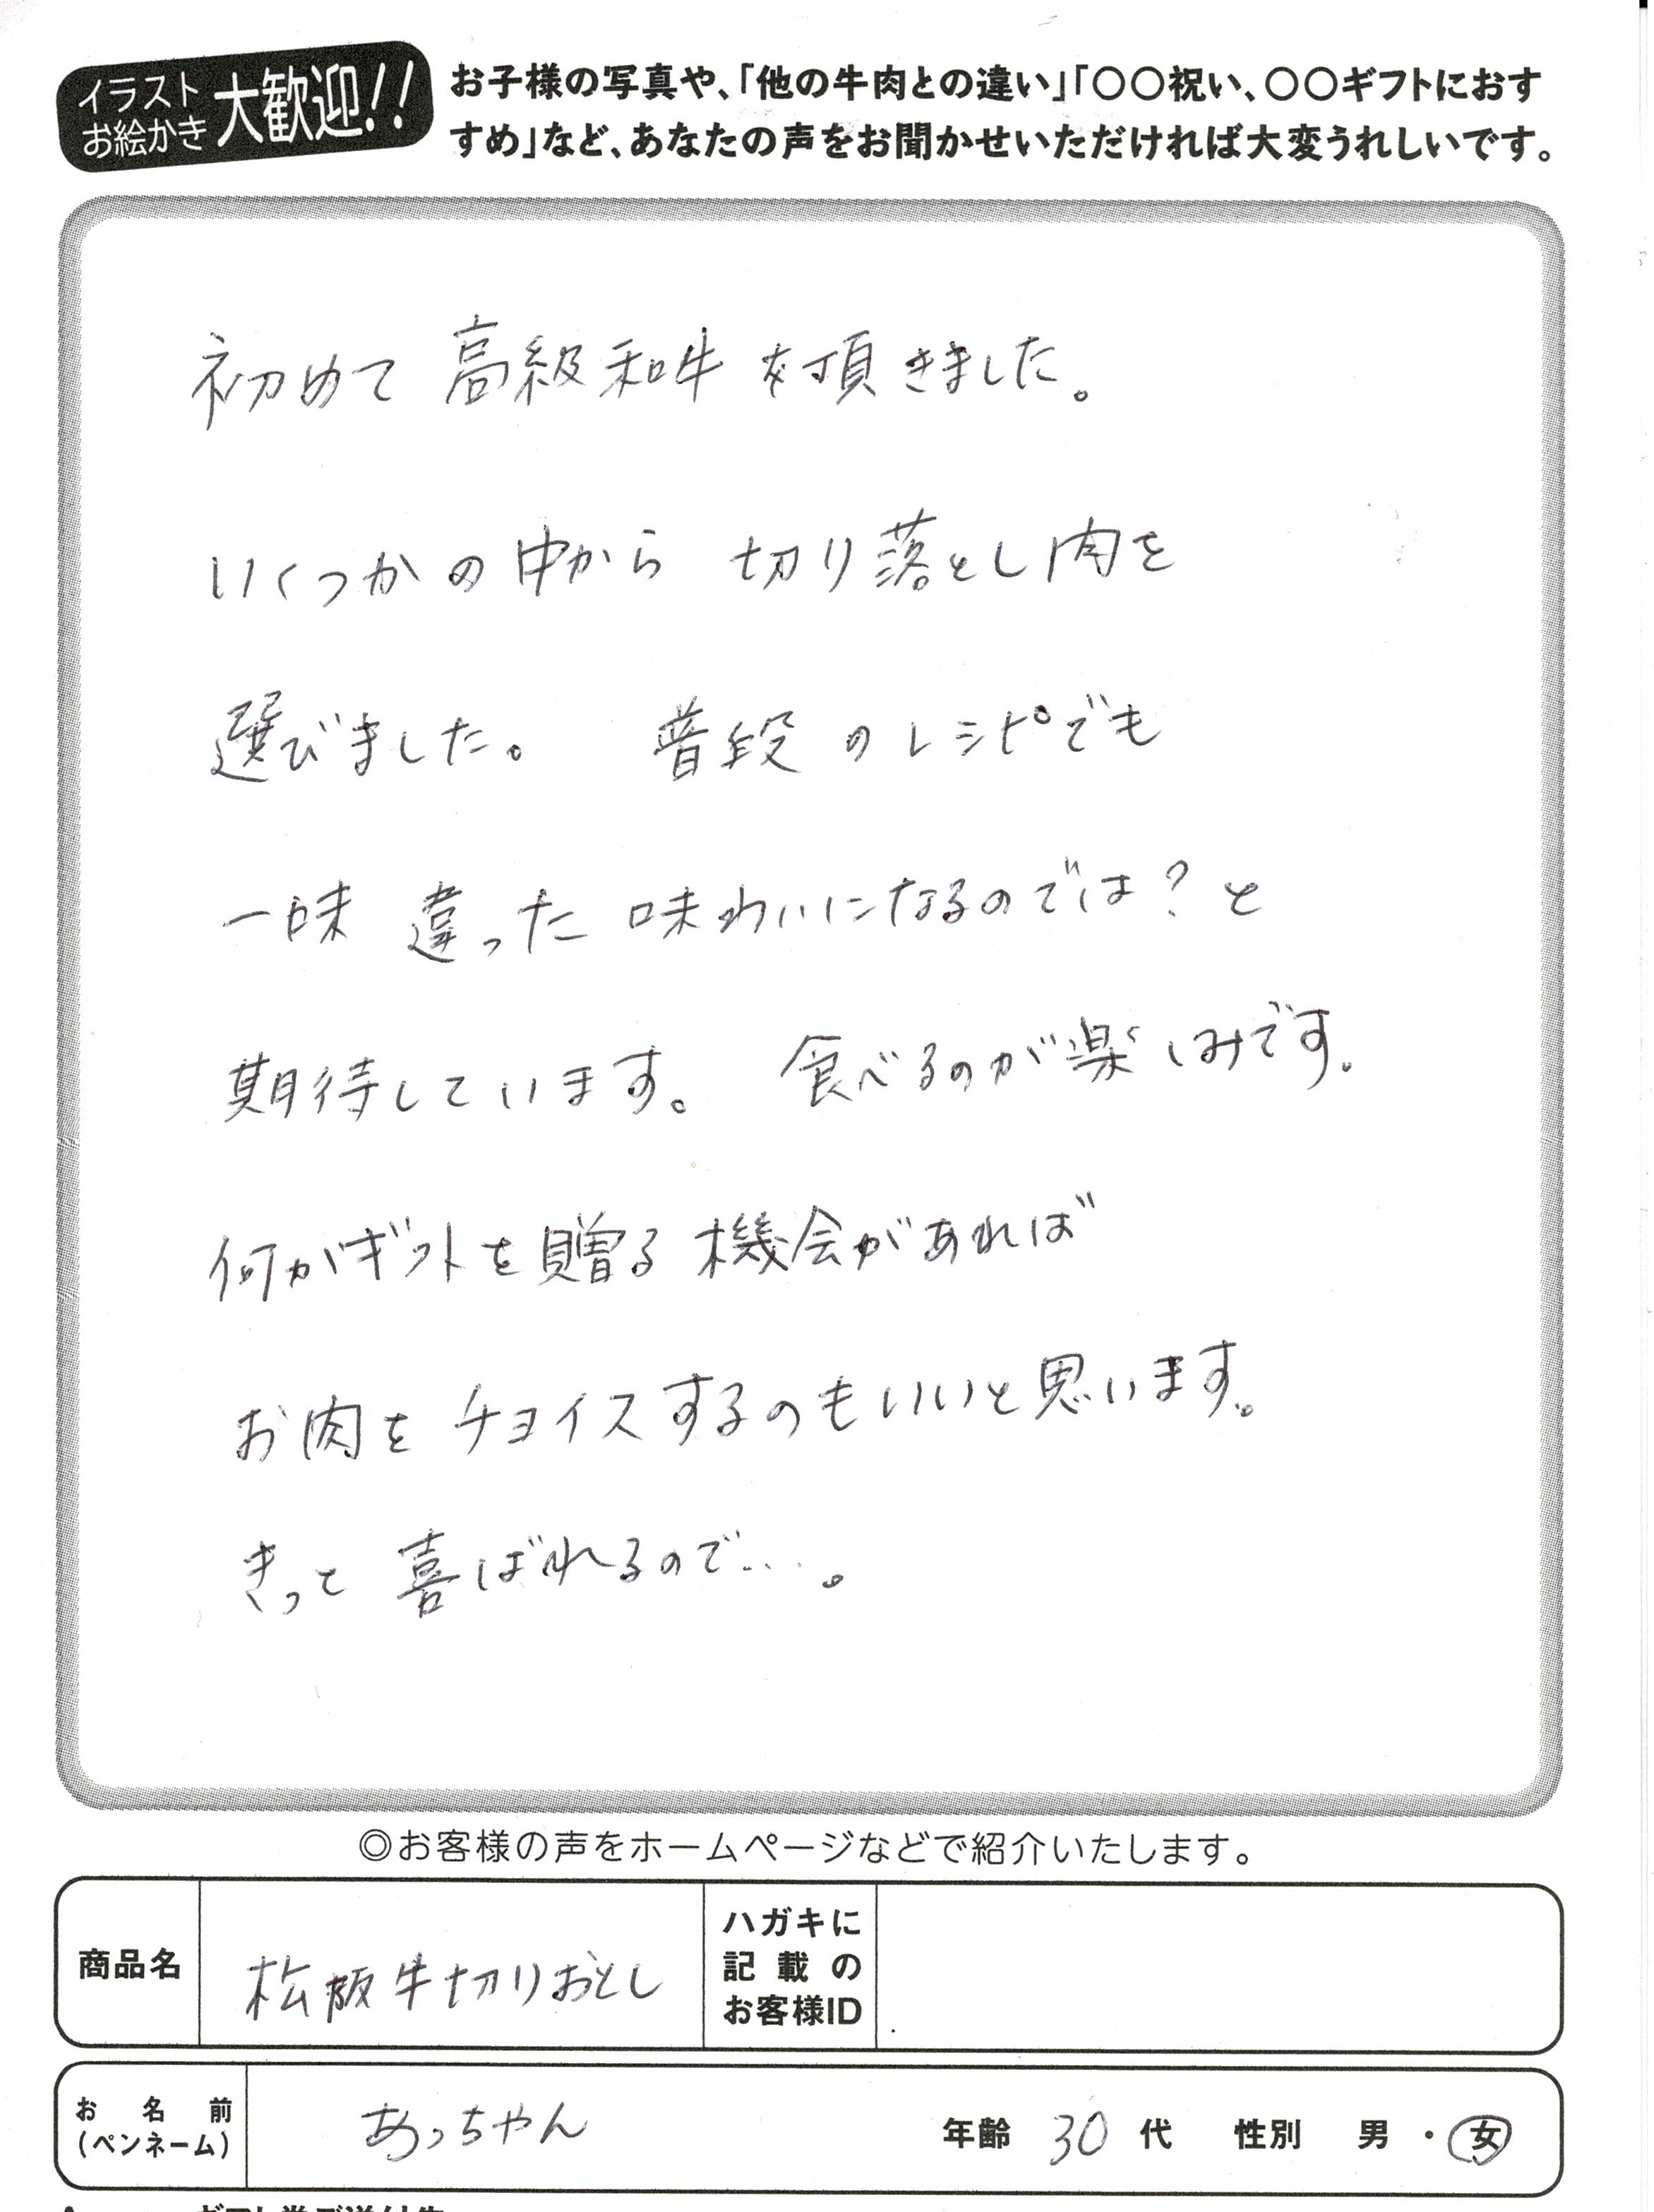 イラスト
お絵かき
大歓迎!!
お子様の写真や、「他の牛肉との違い」「〇〇祝い、〇〇ギフトにおす
すめ」など、あなたの声をお聞かせいただければ大変うれしいです。
初めて 高級和牛 を頂きました。
いくつかの中から 切り落とし肉を
選びました。 普段のレシピでも
一味 違った 味わいになるのでは?と
期待しています。 食べるのが楽しみです。
何かギフトを贈る機会があれば
お肉をチョイスするのもいいと思います。
きっと 喜ばれるので….。
◎お客様の声をホームページなどで紹介いたします。
商品名 松阪牛切りおとし
ハガキに
記載の
お客様ID
お名前
(ペンネーム)
あっちゃん
年齢 30 代 性別 男・女